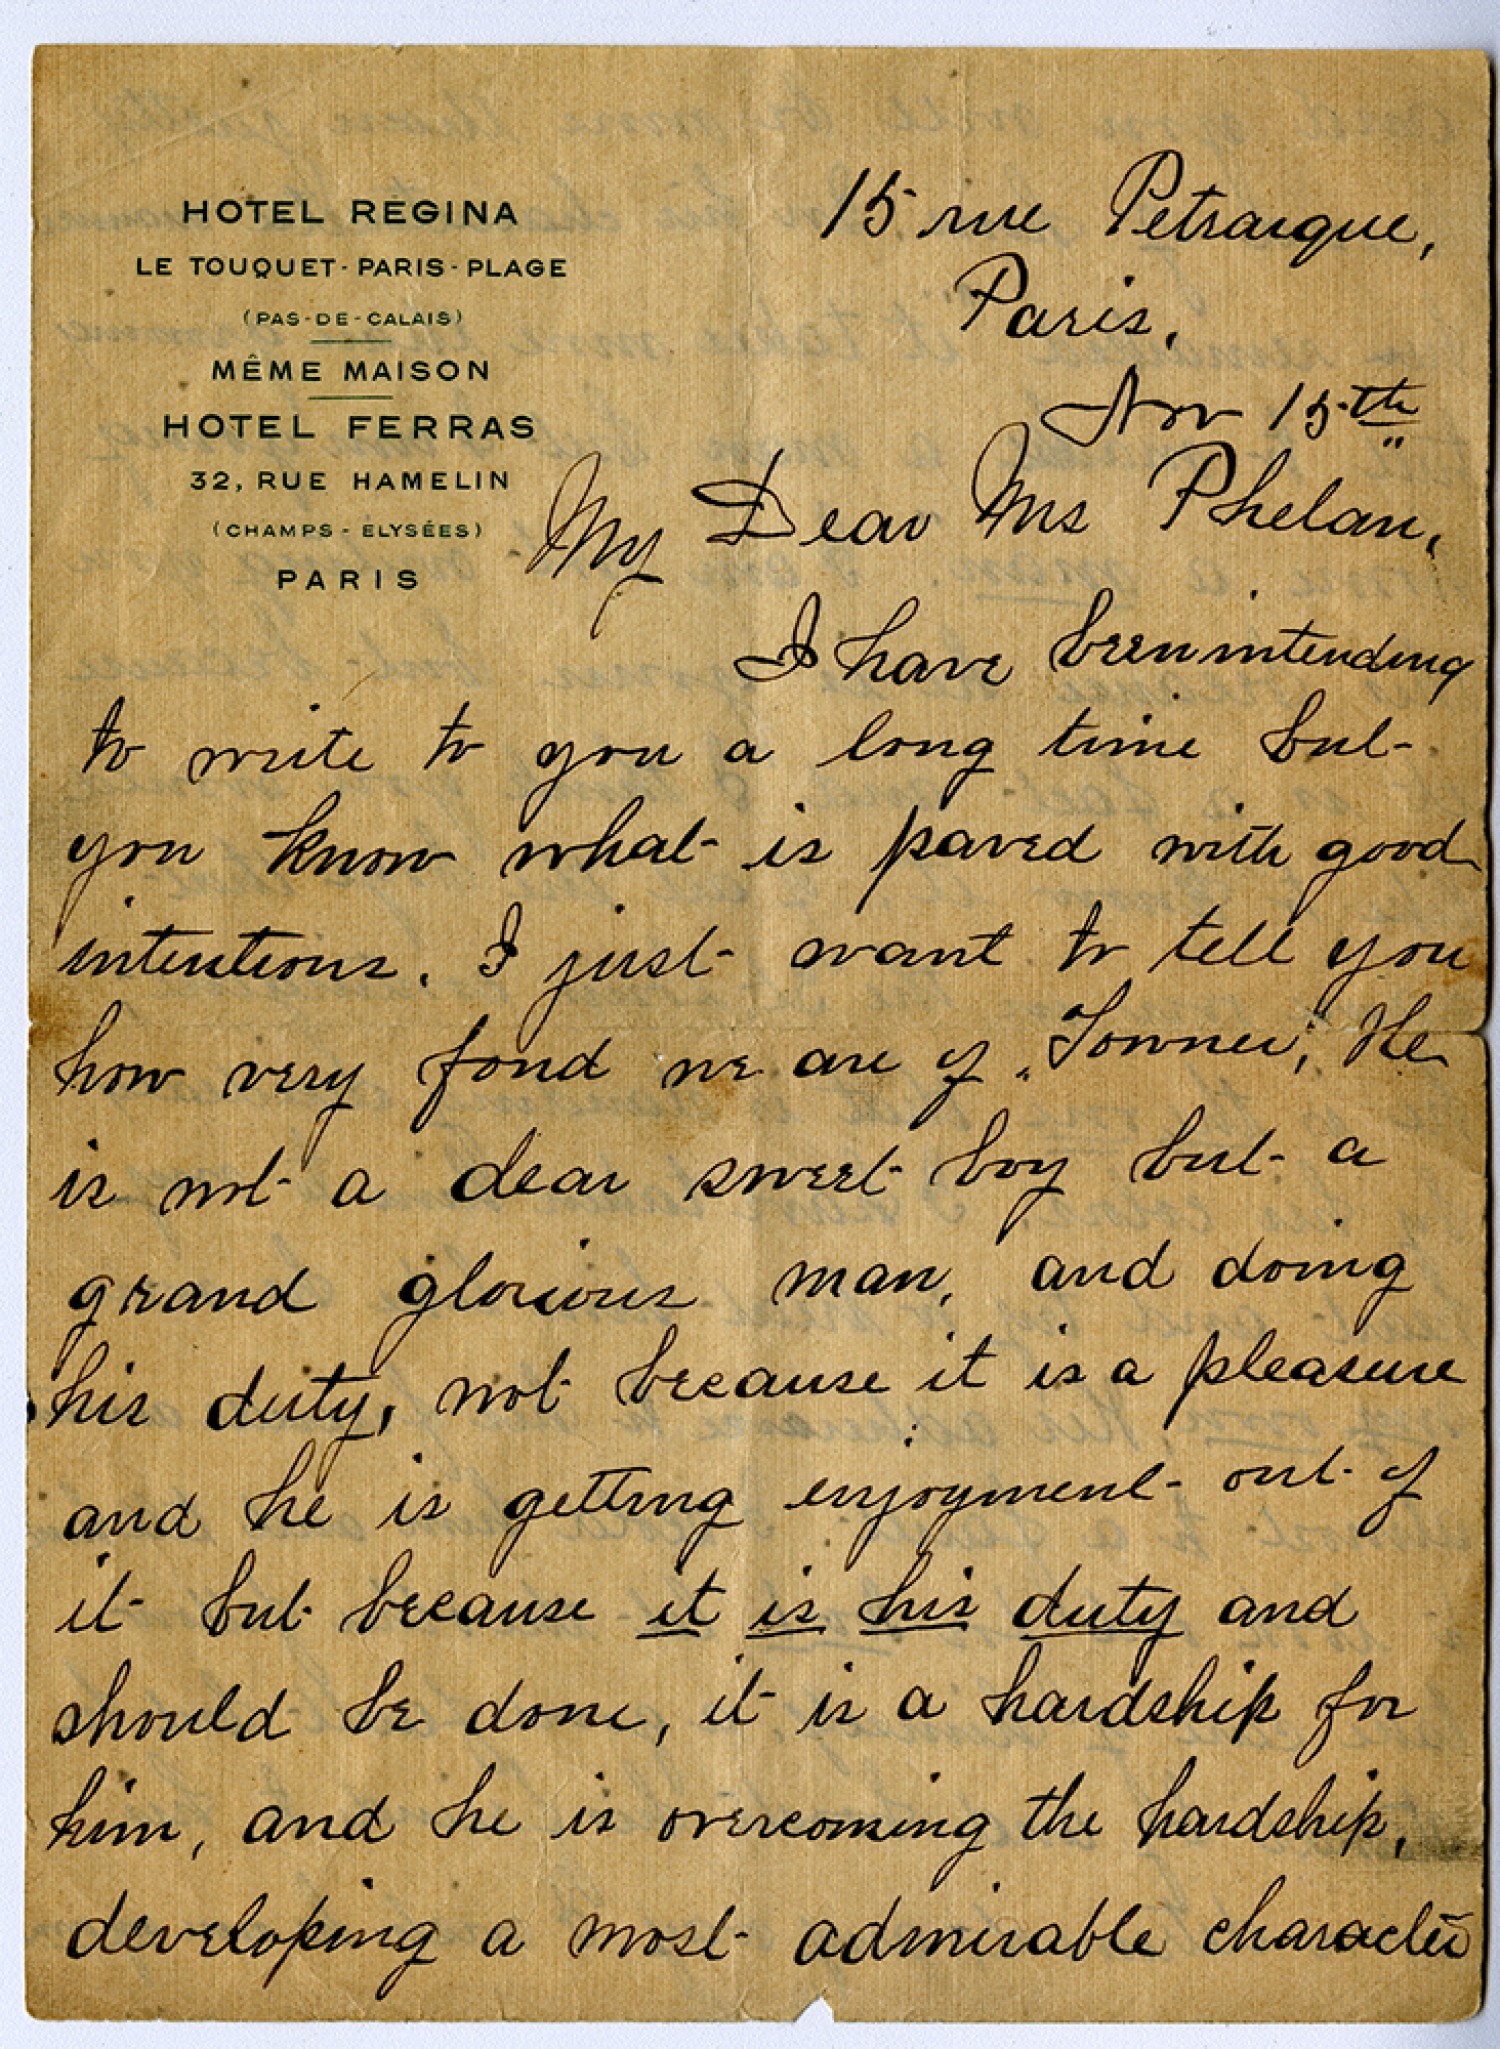 HOTEL REGINA
LE TOUQUET-PARIS-PLAGE
(PAS-DE-CALAIS)
MÊME MAISON
HOTEL FERRAS
32, RUE HAMELIN
(CHAMPS-ELYSÉES)
PARIS
15 rue Petrarque,
Paris,
Nov 15th
My Dear Mrs Phelan,
I have been intending
to write to you a long time but
you know what is paved with good
intentions. I just want to tell you
how very fond we are of "Towner," He
is not a dear sweet boy but a
grand glorious man, and doing
his duty, not because it is a pleasure
and he is getting enjoyment out of
it but because it is his duty and
should be done, it is a hardship for
him, and he is overcoming the hardship,
developing a most admirable character